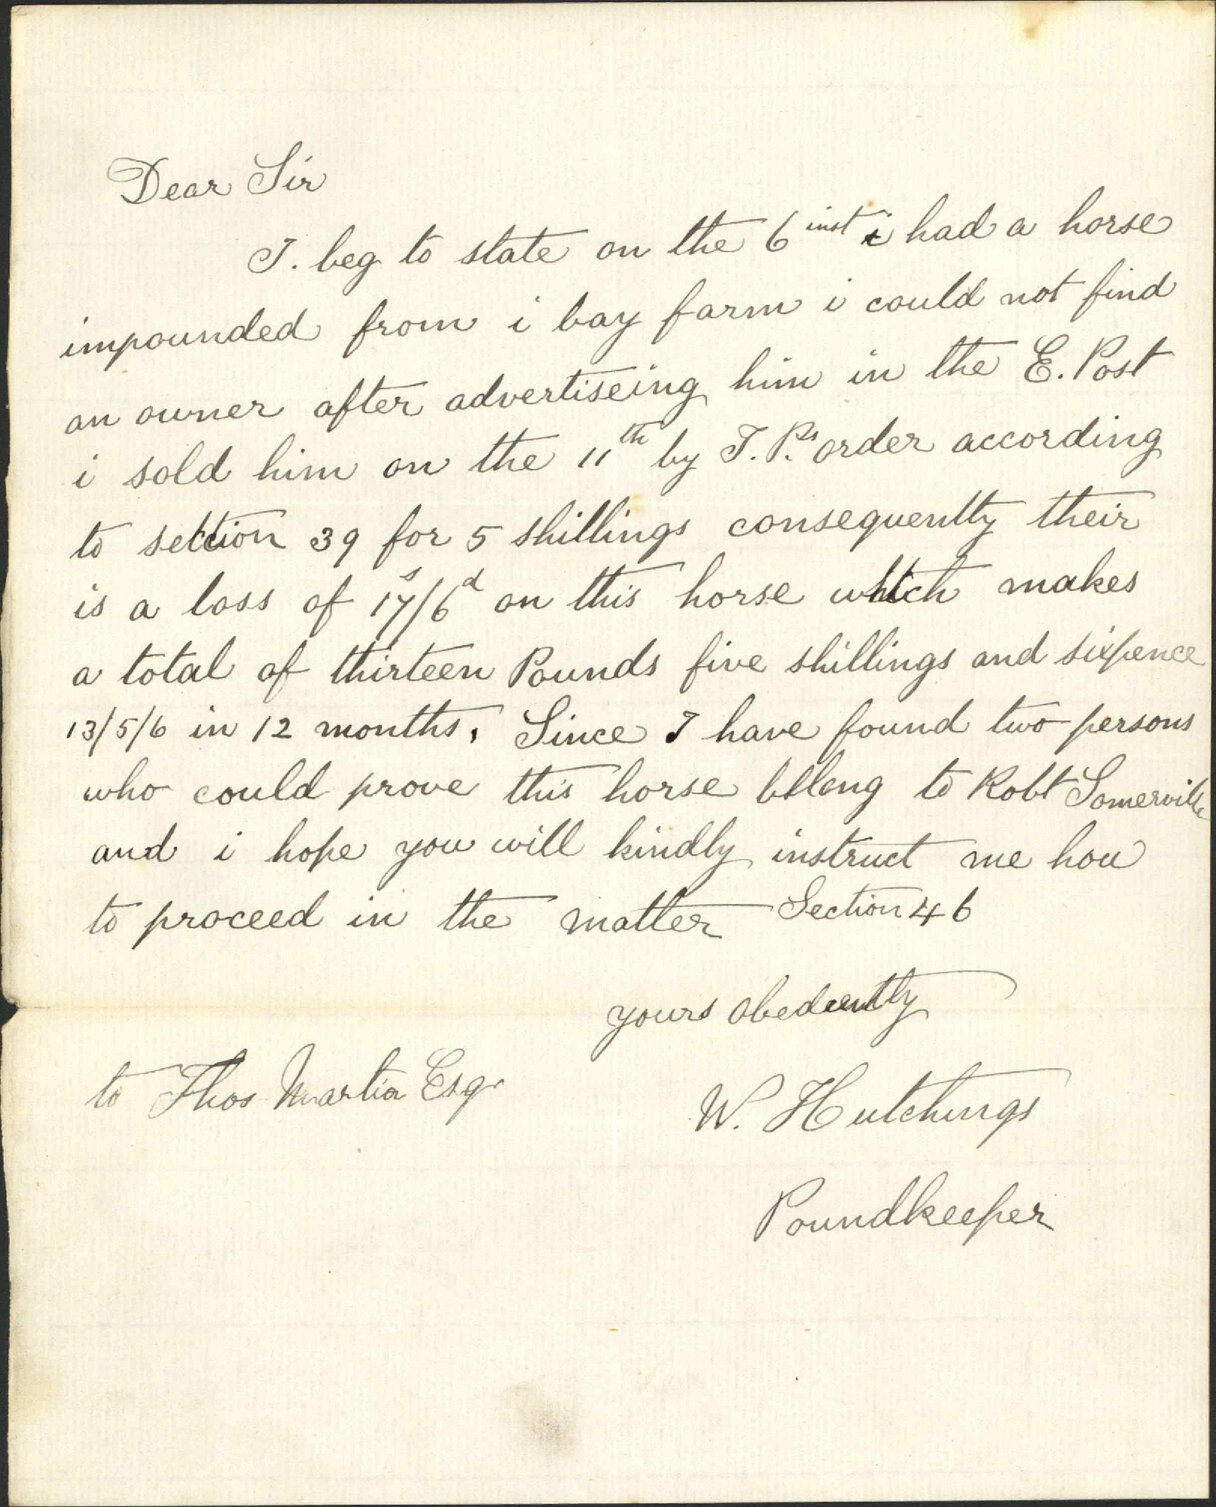 Dear Sir
I. beg to state on the 6 inst i had a horse
impounded from i bay farm i could not find
an owner after advertiseing him in the E. Post
i sold him on the 11th by J. Ps order according
to section 39 for 5 shillings consequently their
is a loss of 17s/6d on this horse which makes
a total of thirteen Pounds five shillings and sixpence
13/5/6 in 12 months. Since I have found two persons
who could prove this horse belong to Robt Somerville
and i hope you will kindly instruct me how
to proceed in the matter Section 46
yours obedeently
to Thos Martin Esqr
W. Hutchings
Poundkeeper